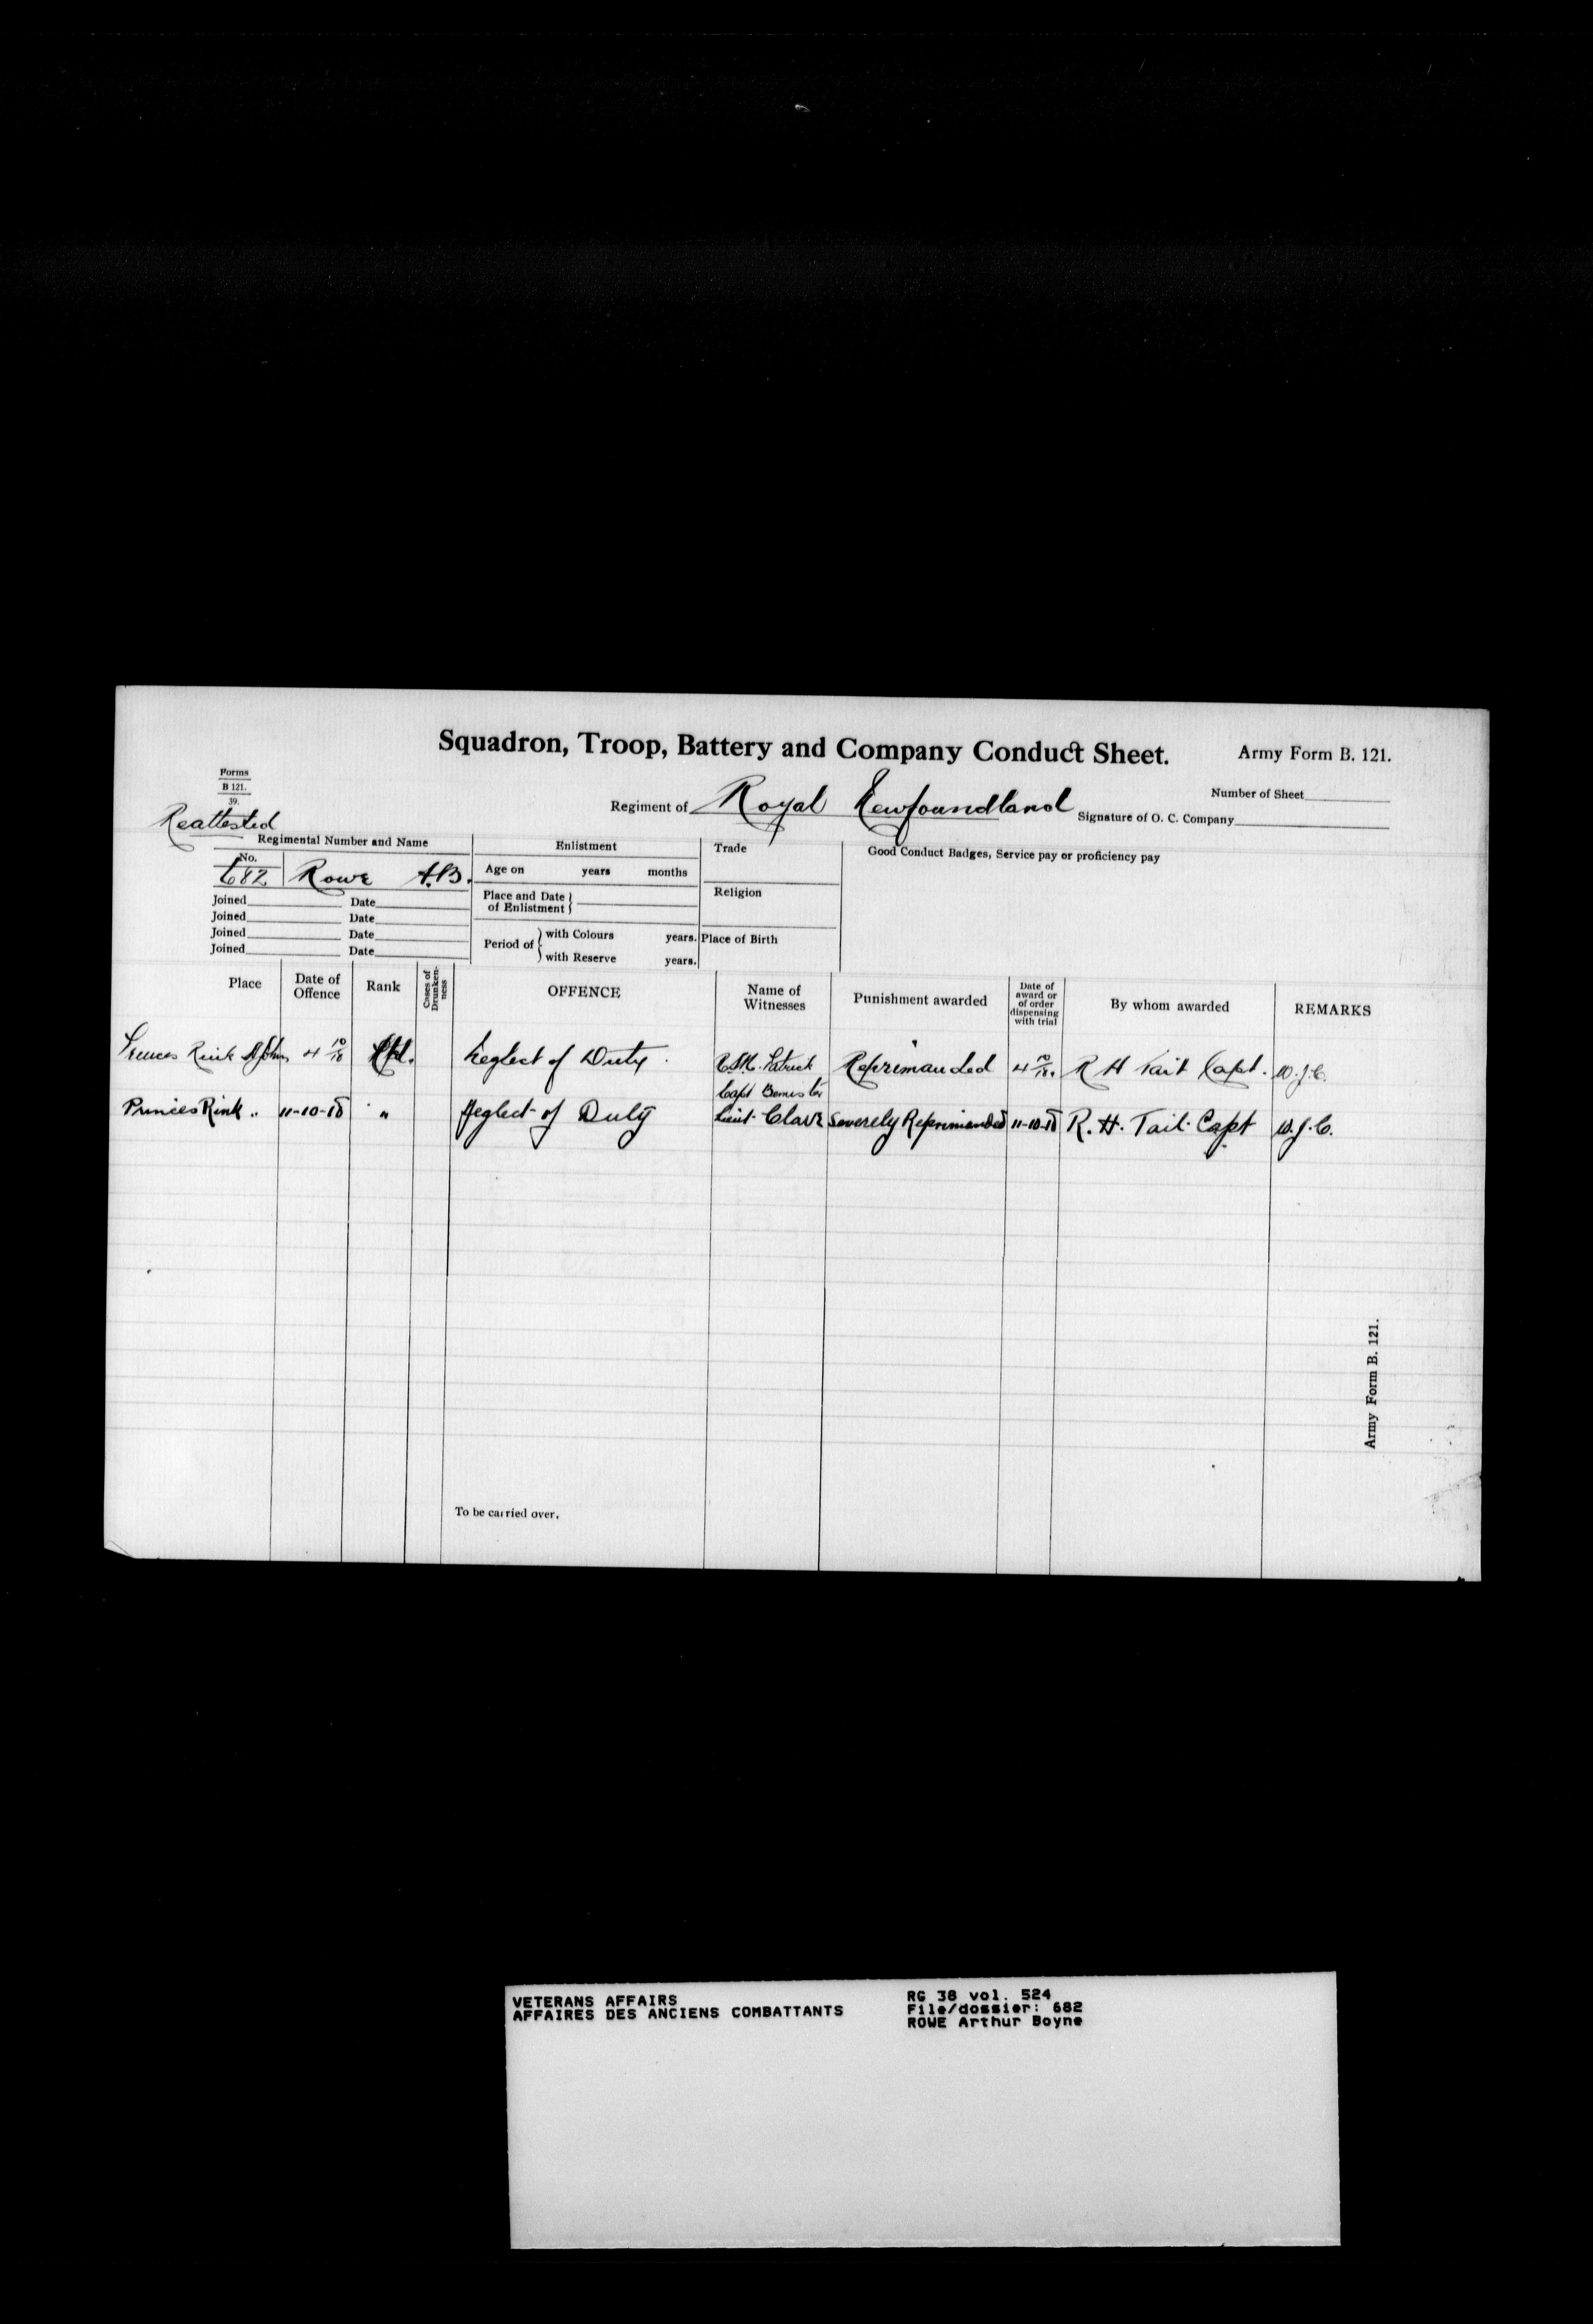 Squadron, Troop, Battery and Company Conduct Sheet. Army Form B. 121.
Forms
B 121.
39.
Reattested
Regiment of Royal Newfoundland
Number of Sheet
Signature of O. C. Company
Regimental Number and Name
No.
682 Rowe A.B.
Joined Date
Joined Date
Joined Date
Joined Date
Enlistment
Age on years months
Place and Date of Enlistment
Period of with Colours years.
with Reserve years.
Trade
Religion
Place of Birth
Good Conduct Badges, Service pay or proficiency pay
Place Date of Offence Rank Cases of Drunken-ness OFFENCE Name of Witnesses Punishment awarded Date of award or of order dispensing with trial By whom awarded REMARKS
Princes Rink St Johns 4 10/18 Neglect of Duty. C.S.M. Patrick Reprimanded 4 10/18. R H Tait Capt. W.J.C.
Capt
Princes Rink " 11-10-18 " Neglect of Duty Lieut. Severely Reprimanded 11-10-18 R. H. Tait Capt W.J.C.
To be carried over.
Army Form B. 121.
VETERANS AFFAIRS
AFFAIRES DES ANCIENS COMBATTANTS
RG 38 vol. 524
File/dossier: 682
ROWE Arthur Boyne